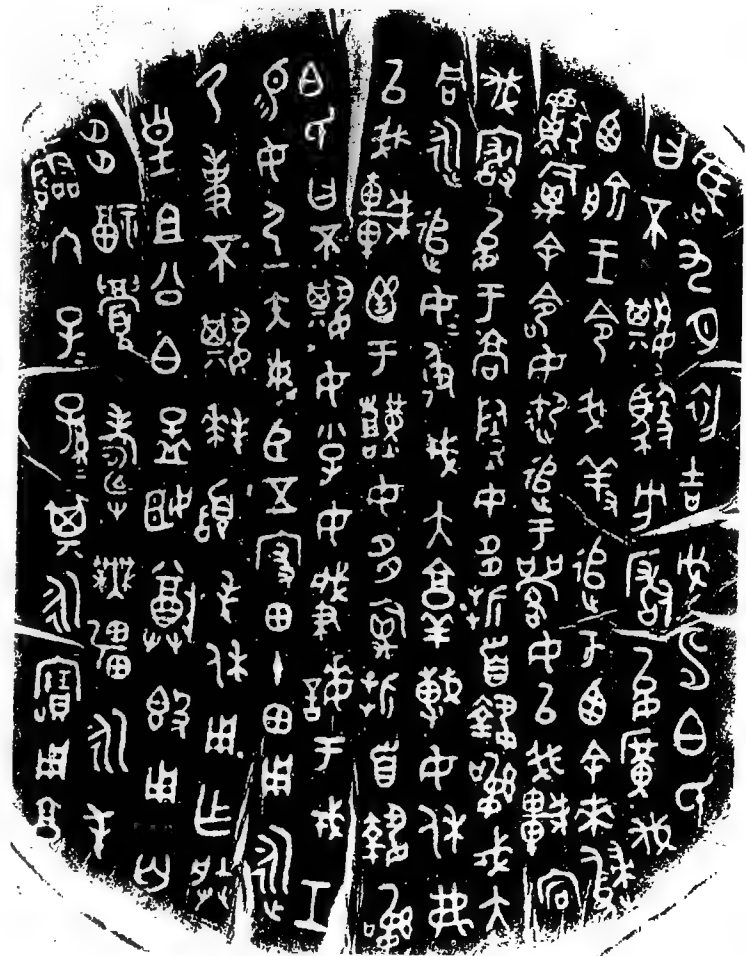 唯九月初吉戊申白氏
曰不其馭方厰允廣伐
西俞王令我羞追于西余來歸
獻禽余命女御追于䇂女以我車宕
伐厰允于高陶女多折首執訊戎大
同永追女女彶戎大敦搏女休弗
以我車函于艱女多禽折首執訊
白氏曰不其女小子女肇誨于戎工
易女弓一矢束臣五家田十田用永乃
事不其拜稽手休用乍朕
皇且公白孟姬尊簋用匄
多福眉壽無疆永屯
霝冬子子孫孫其永寶用享